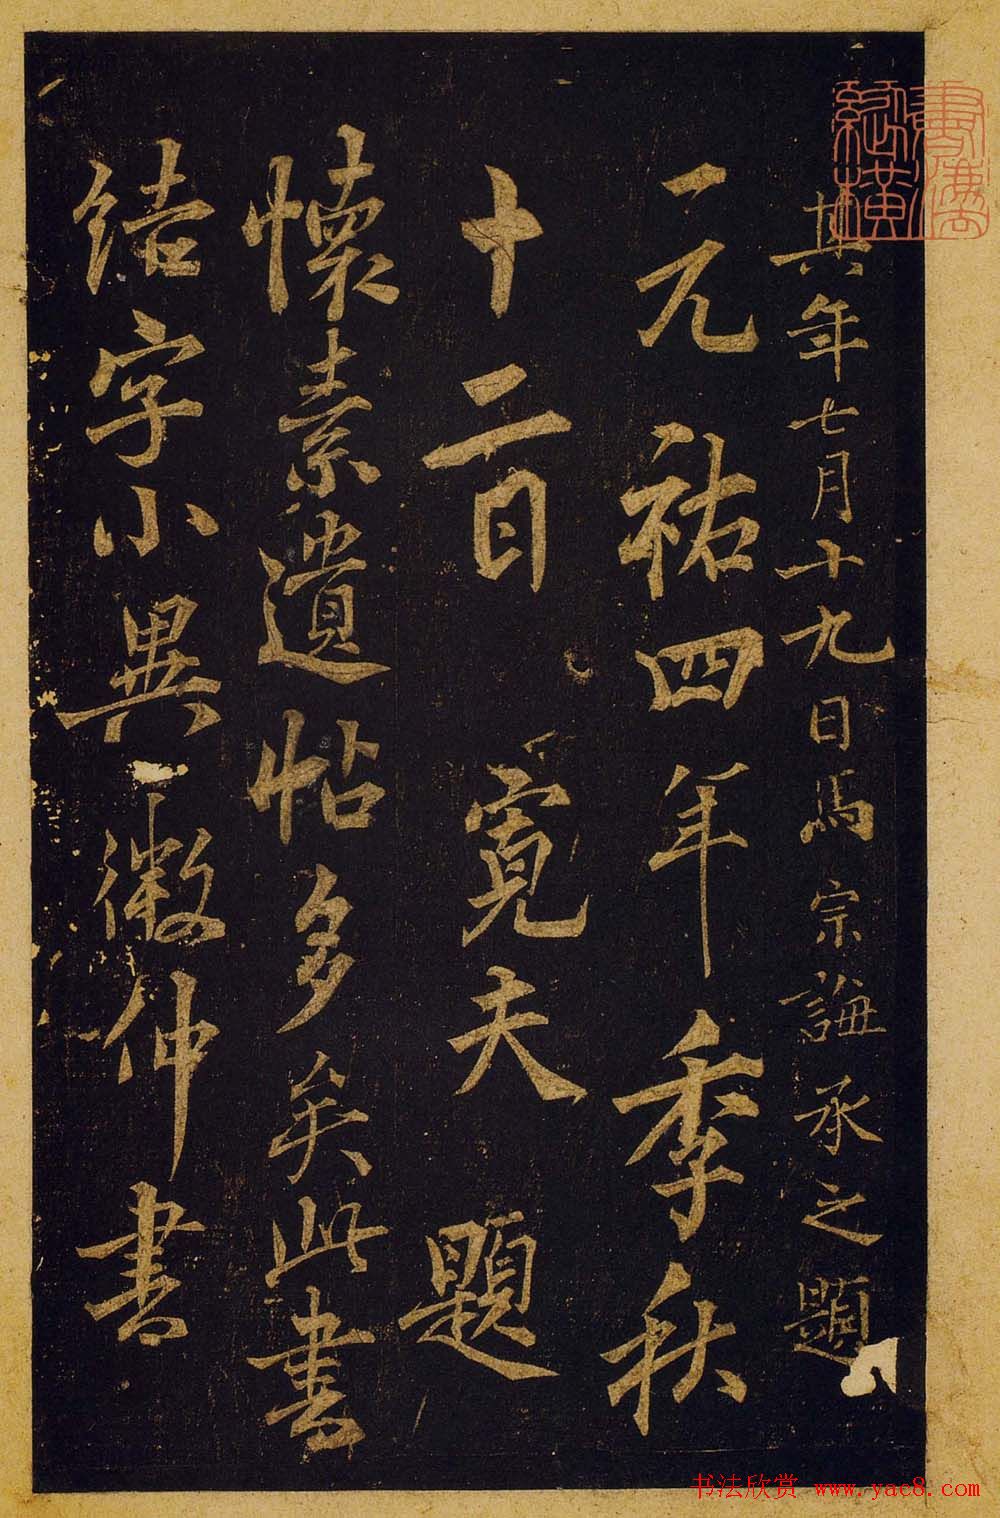 其年七月十九日馬宗誨承之題
元祐四年季秋
十二日寛夫題
懷素遺帖多矣此書
结字小異微仲書
书法欣赏 www.yac8.com